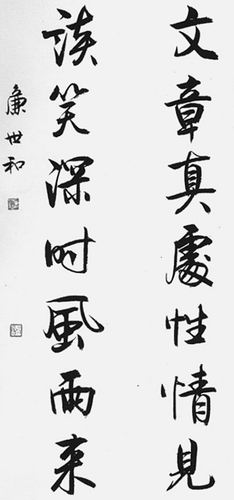 文章真處性情見
談笑深时風雨来
廉世和